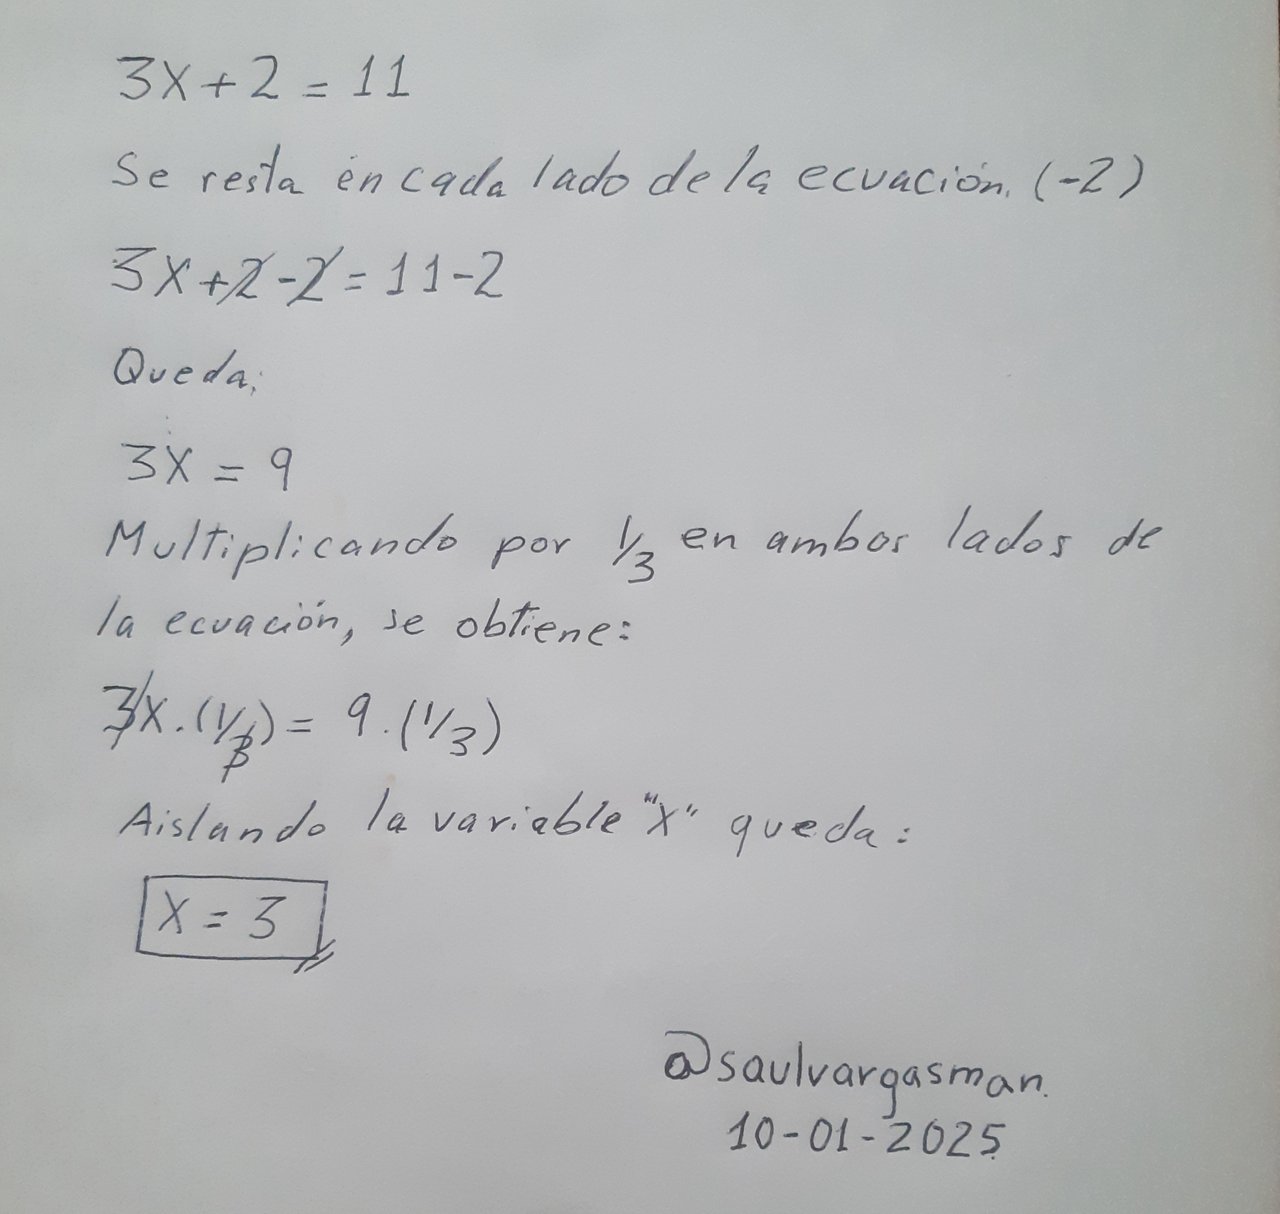 3X+2 = 11
Se resta en cada lado de la ecuación. (-2)
3X+2-2 = 11-2
Queda;
3X = 9
Multiplicando por 1/3 en ambos lados de
la ecuación, se obtiene:
3X.(1/3) = 9.(1/3)
Aislando la variable "X" queda:
X = 3
@saulvargasman.
10-01-2025